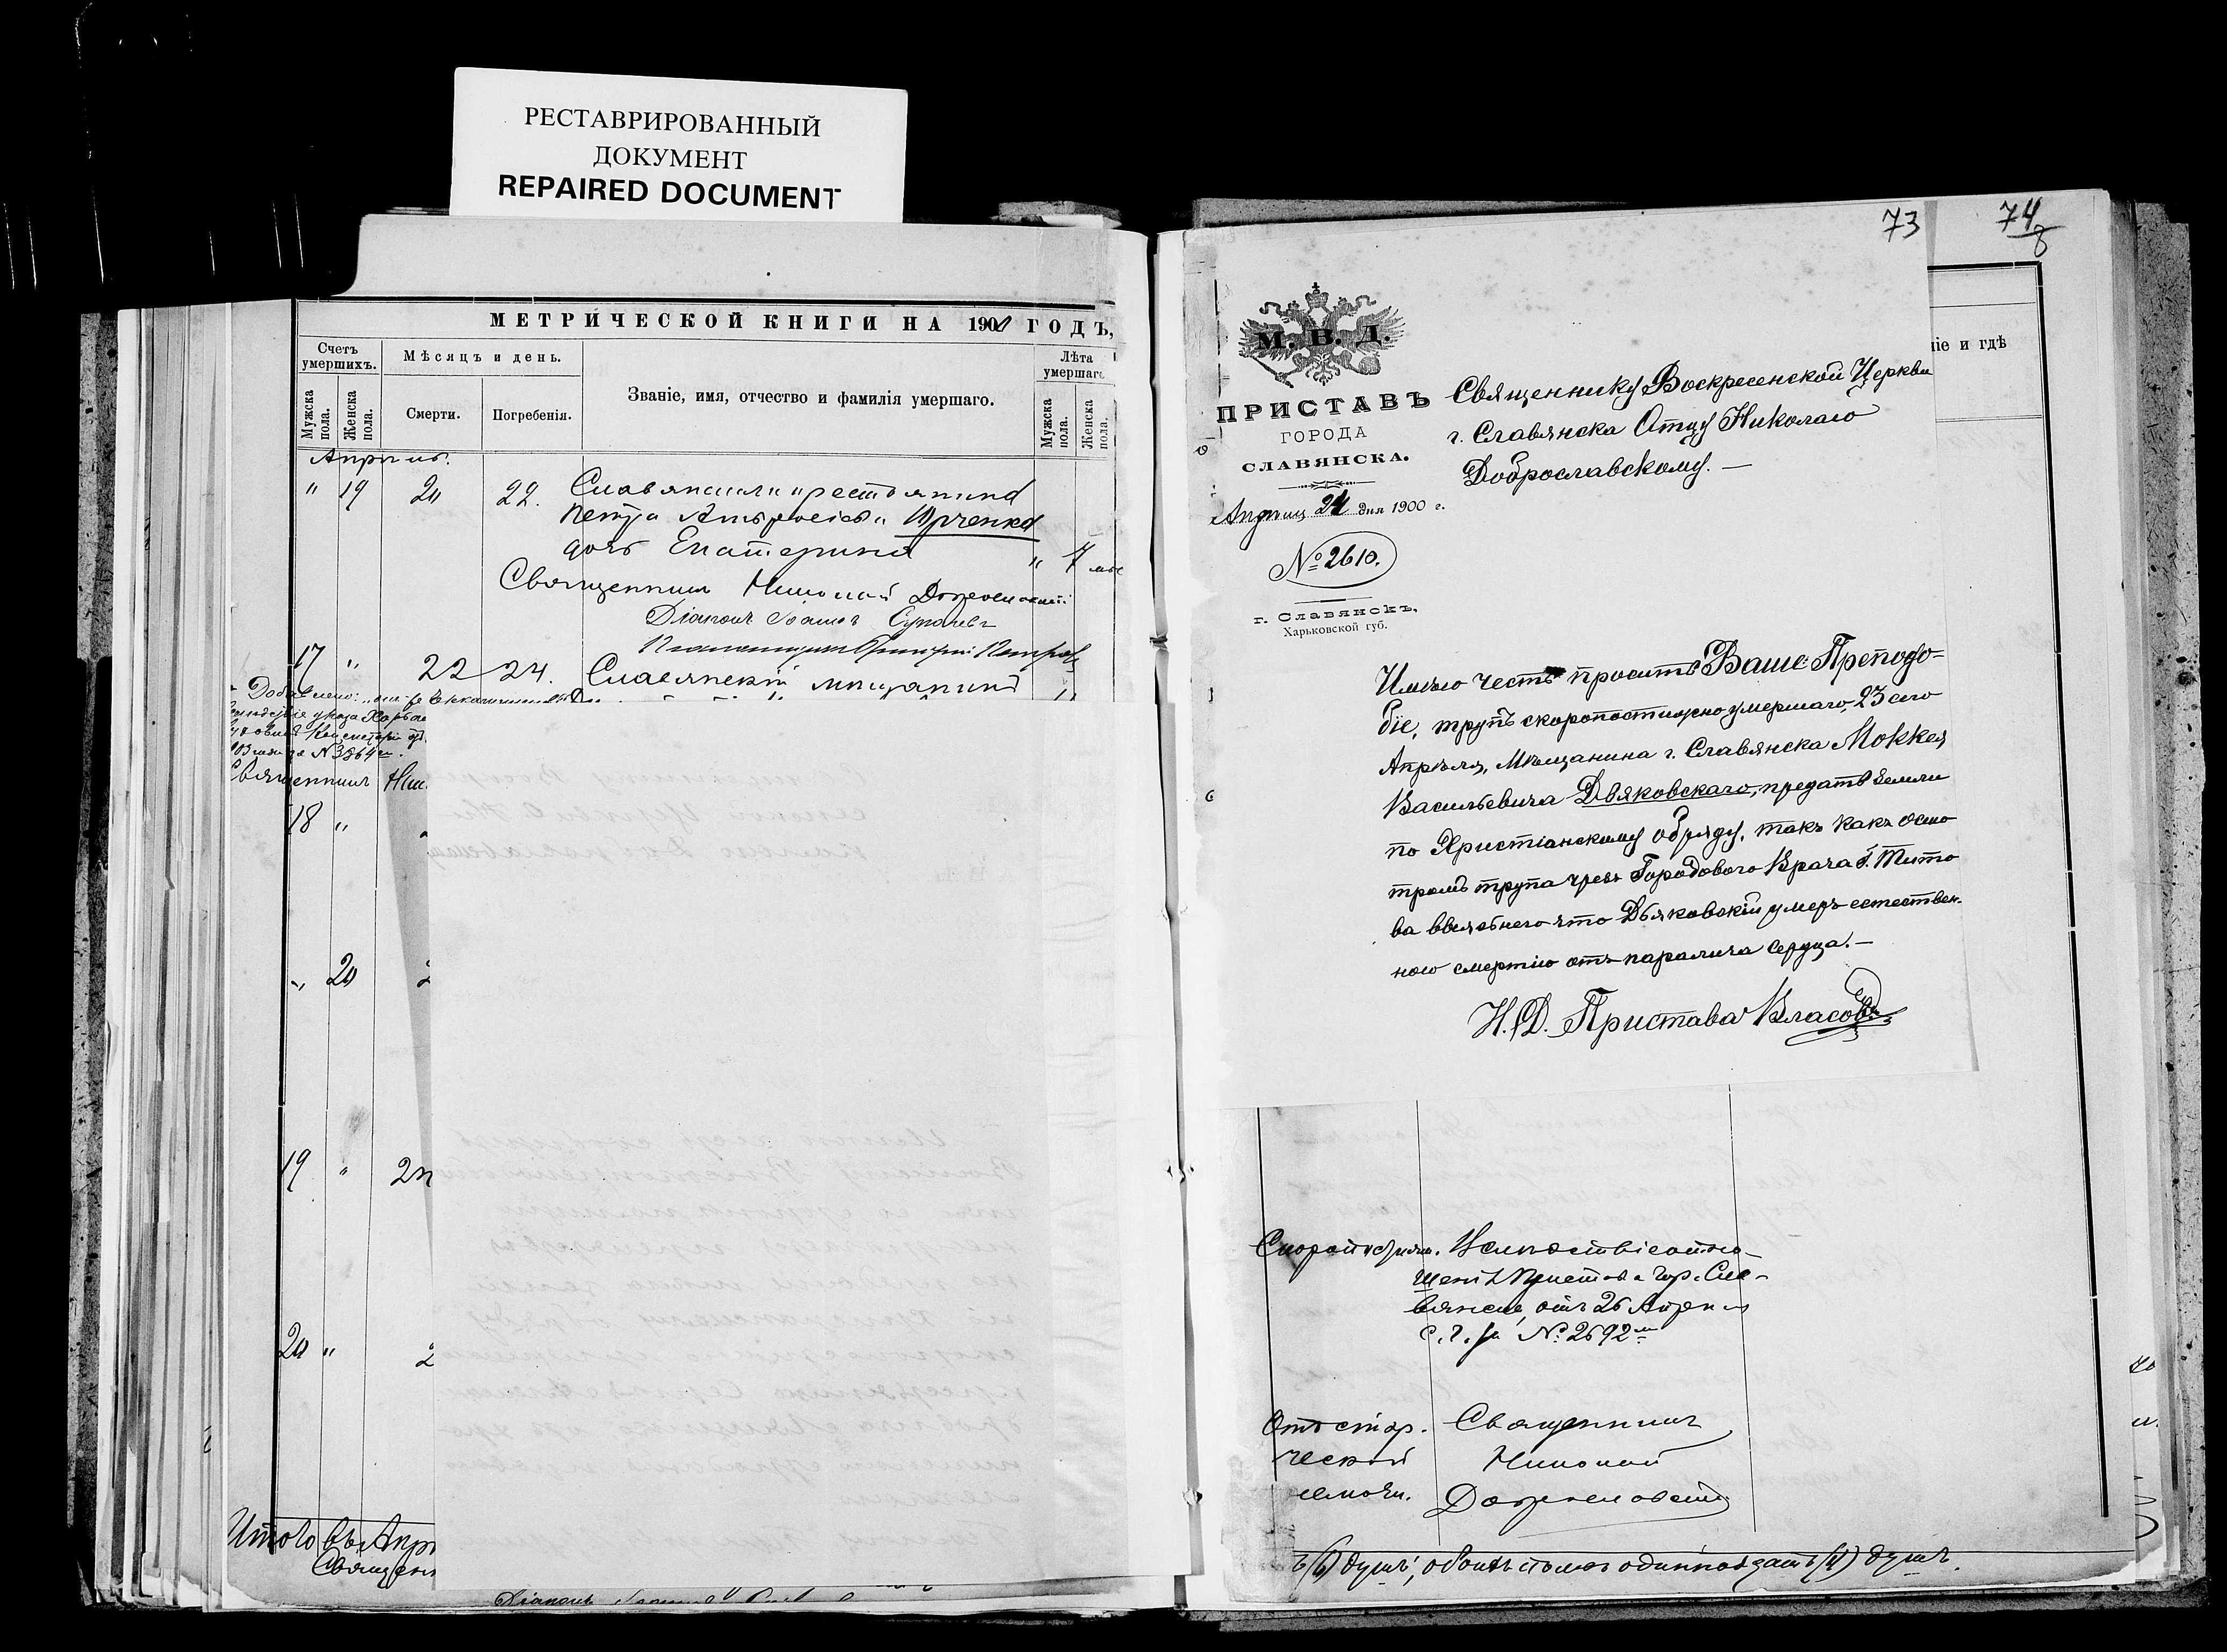 РЕСТАВРИРОВАННЫЙ
ДОКУМЕНТ
REPAIRED DOCUMENT
МЕТРИЧЕСКОЙ КНИГИ НА 1900 ГОДЪ,
Счетъ умершихъ.
Мужска пола.
Женска пола.
Мѣсяцъ и день.
Смерти.
Погребенія.
Званіе, имя, отчество и фамилія умершаго.
Лѣта умершаго
Мужска пола.
Женска пола.
Апрѣль.
" 19 20 22. Славянскаго крестьянина
Петра Юрченко
дочь Екатерина " 7 мѣс
Священникъ Николай Доброславскій
Діаконъ Іоаннъ
17 " 22 24. Славянскій мѣщанинъ
Добавлено:
указа
№ 3864
Священникъ Ник
18 "
" 20 2
19 " 2
20 " 2
Итого въ Апр
Священ
Діаконъ
73
74
8
іе и гдѣ
М. В. Д.
ПРИСТАВЪ
ГОРОДА
СЛАВЯНСКА.
Апрѣля 24 дня 1900 г.
№ 2610.
г. Славянскъ,
Харьковской губ.
Священнику Воскресенской Церкви
г. Славянска Отцу Николаю
Доброславскому. —
Имѣю честь просить Ваше Преподо-
біе, трупъ скоропостижно умершаго, 23 сего
Апрѣля, Мѣщанина г. Славянска Моккея
Васильевича Дьяковскаго, предать землѣ
по Христіанскому обряду, такъ какъ осмо
тромъ трупа чрезъ Городового Врача Г. Тито
ва выяснено что Дьяковскій умеръ естествен-
ною смертію отъ паралича сердца. —
И. Д. Пристава Власовъ
Скоропостижн. Вслѣдствіе отно-
шенія Пристава гор. Сла-
вянска, отъ 26 Апрѣля
с. г. за № 2692
Отъ стар-
ческой
немощи.
Священникъ
Николай
Доброславскій
ъ (6) душъ; обоихъ половъ одиннадцать (11) душъ.